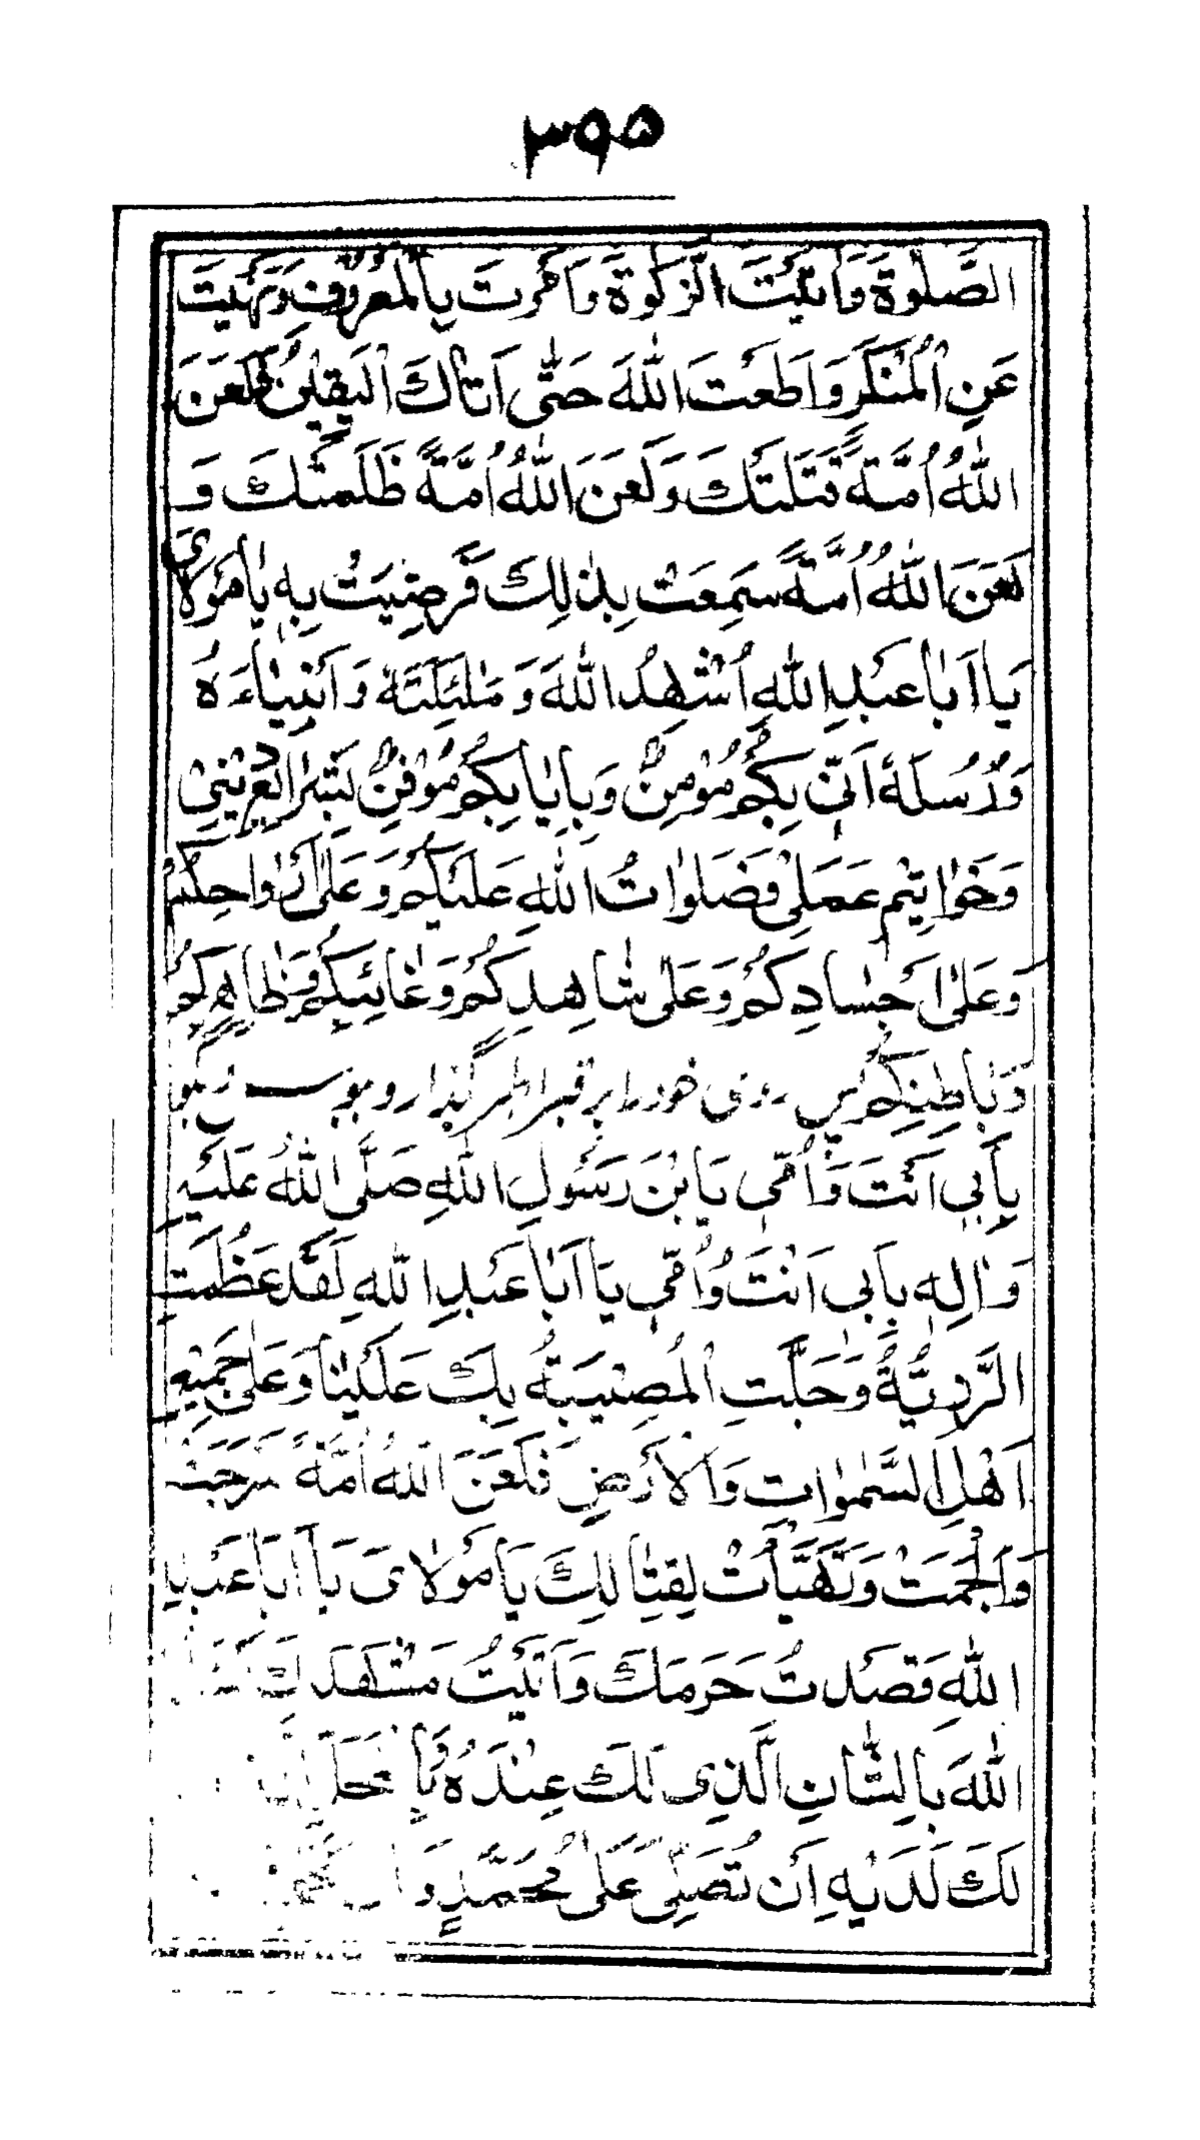 ۳۹۵
الصَّلٰوةَ وَاٰتَيْتَ الزَّكٰوةَ وَاَمَرْتَ بِالْمَعْرُوفِ وَنَهَيْتَ
عَنِ الْمُنْكَرِ وَاَطَعْتَ اللّٰهَ حَتّٰى اَتٰاكَ الْيَقِيْنُ فَلَعَنَ
اللّٰهُ اُمَّةً قَتَلَتْكَ وَلَعَنَ اللّٰهُ اُمَّةً ظَلَمَتْكَ وَ
لَعَنَ اللّٰهُ اُمَّةً سَمِعَتْ بِذٰلِكَ فَرَضِيَتْ بِهِ يٰا مَوْلاٰيَ
يَا اَبٰا عَبْدِ اللّٰهِ اُشْهِدُ اللّٰهَ وَمَلٰئِكَتَهُ وَاَنْبِيٰاءَهُ
وَرُسُلَهُ اَنّى بِكُمْ مُؤْمِنٌ وَبِاِيٰابِكُمْ مُوْقِنٌ بِشَرٰايِعِ دِيْنِىْ
وَخَوٰاتِيْمِ عَمَلِىْ فَصَلَوٰاتُ اللّٰهِ عَلَيْكُمْ وَعَلٰى اَرْوٰاحِكُمْ
وَعَلٰى اَجْسٰادِكُمْ وَعَلٰى شٰاهِدِكُمْ وَغٰائِبِكُمْ وَظٰاهِرِكُمْ
وَبٰاطِنِكُمْ پس روى خود را بر قبر اطهر بگذار و ببوس و بگو
بِأَبِى اَنْتَ وَاُمّى يَا بْنَ رَسُولِ اللّٰهِ صَلَّى اللّٰهُ عَلَيْهِ
وَاٰلِهِ بِاَبى اَنْتَ وَاُمّى يَا اَبٰا عَبْدِ اللّٰهِ لَقَدْ عَظُمَتِ
الرَّزِيَّةُ وَجَلَّتِ الْمُصِيْبَةُ بِكَ عَلَيْنٰا وَعَلٰى جَمِيْعِ
اَهْلِ السَّمٰوٰاتِ وَالْاَرْضِ فَلَعَنَ اللّٰهُ اُمَّةً اَسْرَجَتْ
وَاَلْجَمَتْ وَتَهَيَّاَتْ لِقِتٰالِكَ يَا مَوْلاٰىَ يَا اَبَا عَبْدِ
اللّٰهِ قَصَدْتُ حَرَمَكَ وَاَتَيْتُ مَشْهَدَكَ
اللّٰهَ بِالشَّانِ الَّذِى لَكَ عِنْدَهُ وَبِالْمَحَلِّ
لَكَ لَدَيْهِ اَنْ تُصَلِّىَ عَلٰى مُحَمَّدٍ وَ